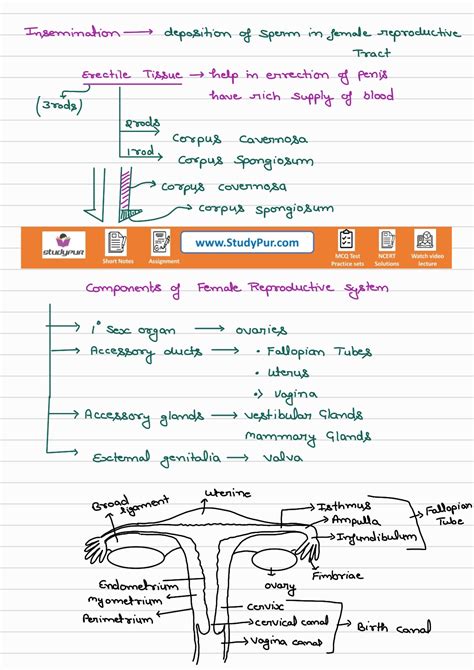 Insemination → deposition of sperm in female reproductive
Tract
Erectile Tissue → help in errection of penis
(3rods) have rich supply of blood
2rods
Corpus Cavernosa
1rod
Corpus Spongiosum
Corpus covernosa
Corpus spongiosum
studypur
Short Notes
Assignment
www.StudyPur.com
MCQ Test
Practice sets
NCERT
Solutions
Watch video
lecture
Components of Female Reproductive System
1° Sex organ → ovaries
Accessory ducts → • Fallopian Tubes
• uterus
•> vagina
Accessory glands → vestibular Glands
Mammary Glands
External genitalia → valva
Broad
ligament
uterine
Isthmus
Ampulla
Infundibulum
Fallopian
Tube
Fimbriae
ovary
Endometrium
myometrium
Perimetrium
cervix
cervical canal
vagina canal
Birth canal